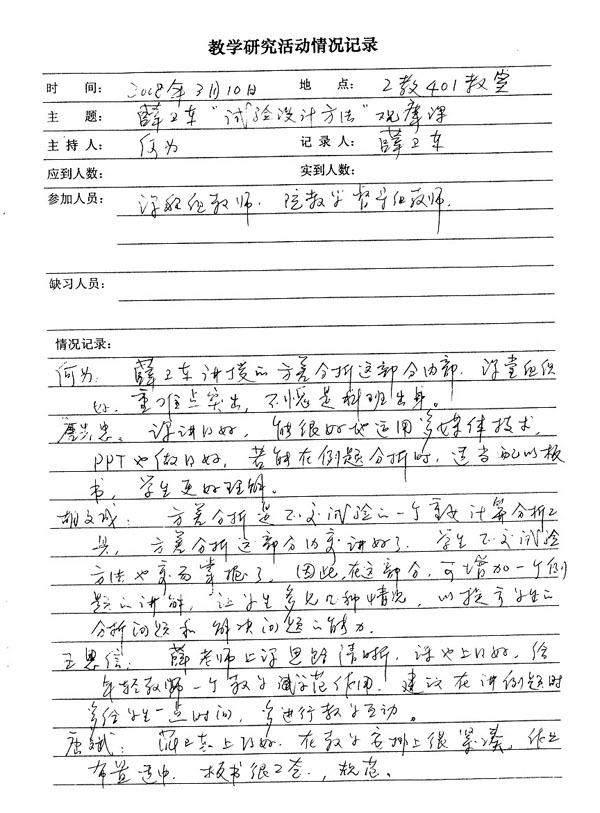 教学研究活动情况记录
时 间： 2008年3月10日 地 点： 2教401教室
主 题： 薛卫东“试验设计方法”观摩课
主持人： 何为 记录人： 薛卫东
应到人数： 实到人数：
参加人员： 课程组教师. 院教学督导组教师.
缺习人员：
情况记录：
何为： 薛卫东讲授的方差分析这部分内容. 课堂组织
好. 重难点突出, 不愧是科班出身。
唐 忠。 课讲的好. 能很好地运用多媒体技术.
PPT也做的好. 若能在例题分析时, 适当配以板
书, 学生更好理解。
胡文成： 方差分析是正交试验的一个重要计算分析工
具, 方差分析这部分内容讲好了. 学生正交试验
方法也容易掌握了. 因此,在这部分, 可增加一个例
题的讲解, 让学生多见几种情况, 以提高学生的
分析问题和解决问题的能力.
王恩信： 薛老师上课思路清晰. 课也上的好. 给
年轻教师一个教学 示范作用. 建议在讲例题时
多给学生一点时间, 多进行教学互动。
唐斌： 薛卫东上的好. 在教学安排上很紧凑, 作业
布置适中. 板书很工整., 规范。